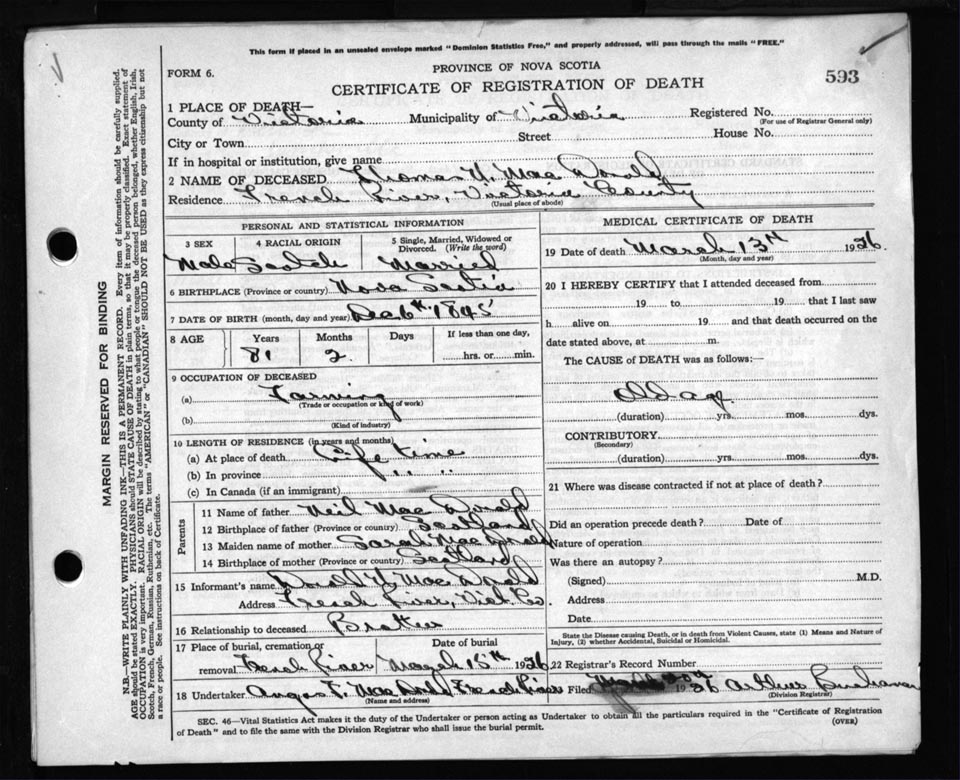 This form if placed in an unsealed envelope marked "Dominion Statistics Free," and properly addressed, will pass through the mails "FREE."
PROVINCE OF NOVA SCOTIA
FORM 6.
CERTIFICATE OF REGISTRATION OF DEATH
593
1 PLACE OF DEATH—
County of Victoria Municipality of Victoria Registered No.
(For use of Registrar General only)
City or Town Street House No.
If in hospital or institution, give name
2 NAME OF DECEASED Thomas Y. Mac Donald
Residence French River, Victoria County
(Usual place of abode)
PERSONAL AND STATISTICAL INFORMATION
3 SEX 4 RACIAL ORIGIN 5 Single, Married, Widowed or Divorced. (Write the word)
Male Scotch Married
6 BIRTHPLACE (Province or country) Nova Scotia
7 DATE OF BIRTH (month, day and year) Dec 6th 1845
8 AGE Years Months Days If less than one day,
81 2 hrs. or min.
9 OCCUPATION OF DECEASED
(a) Farming
(Trade or occupation or kind of work)
(b)
(Kind of industry)
10 LENGTH OF RESIDENCE (in years and months)
(a) At place of death Life time
(b) In province " "
(c) In Canada (if an immigrant)
Parents
11 Name of father Neil Mac Donald
12 Birthplace of father (Province or country) Scotland
13 Maiden name of mother Sarah Mac Donald
14 Birthplace of mother (Province or country) Scotland
15 Informant's name Donald Y. Mac Donald
Address French River, Vict. Co.
16 Relationship to deceased Brother
17 Place of burial, cremation or removal Date of burial
French River March 15th 1926
18 Undertaker Angus F. Mac Donald French River
(Name and address)
MEDICAL CERTIFICATE OF DEATH
19 Date of death March 13th 1926
(Month, day and year)
20 I HEREBY CERTIFY that I attended deceased from
19 to 19 that I last saw
h alive on 19 and that death occurred on the
date stated above, at m.
The CAUSE of DEATH was as follows:—
Old age
(duration) yrs. mos. dys.
CONTRIBUTORY
(Secondary)
(duration) yrs. mos. dys.
21 Where was disease contracted if not at place of death?
Did an operation precede death? Date of
Nature of operation
Was there an autopsy?
(Signed) M.D.
Address
Date
State the Disease causing Death, or in death from Violent Causes, state (1) Means and Nature of
Injury, (2) whether Accidental, Suicidal or Homicidal.
22 Registrar's Record Number
Filed March 1926 Arthur Buchanan
(Division Registrar)
SEC. 46—Vital Statistics Act makes it the duty of the Undertaker or person acting as Undertaker to obtain all the particulars required in the "Certificate of Registration
of Death" and to file the same with the Division Registrar who shall issue the burial permit.
(OVER)
MARGIN RESERVED FOR BINDING
N.B.—WRITE PLAINLY WITH UNFADING INK—THIS IS A PERMANENT RECORD. Every item of information should be carefully supplied.
AGE should be stated EXACTLY. PHYSICIANS should STATE CAUSE OF DEATH in plain terms, so that it may be properly classified. Exact statement of
OCCUPATION is very important. RACIAL ORIGIN will be described by stating to what people or tongue the deceased person belonged, whether English, Irish,
Scotch, French, German, Russian, Ruthenian, etc. The terms "AMERICAN" or "CANADIAN" SHOULD NOT BE USED as they express citizenship but not
a race or people. See instructions on back of Certificate.